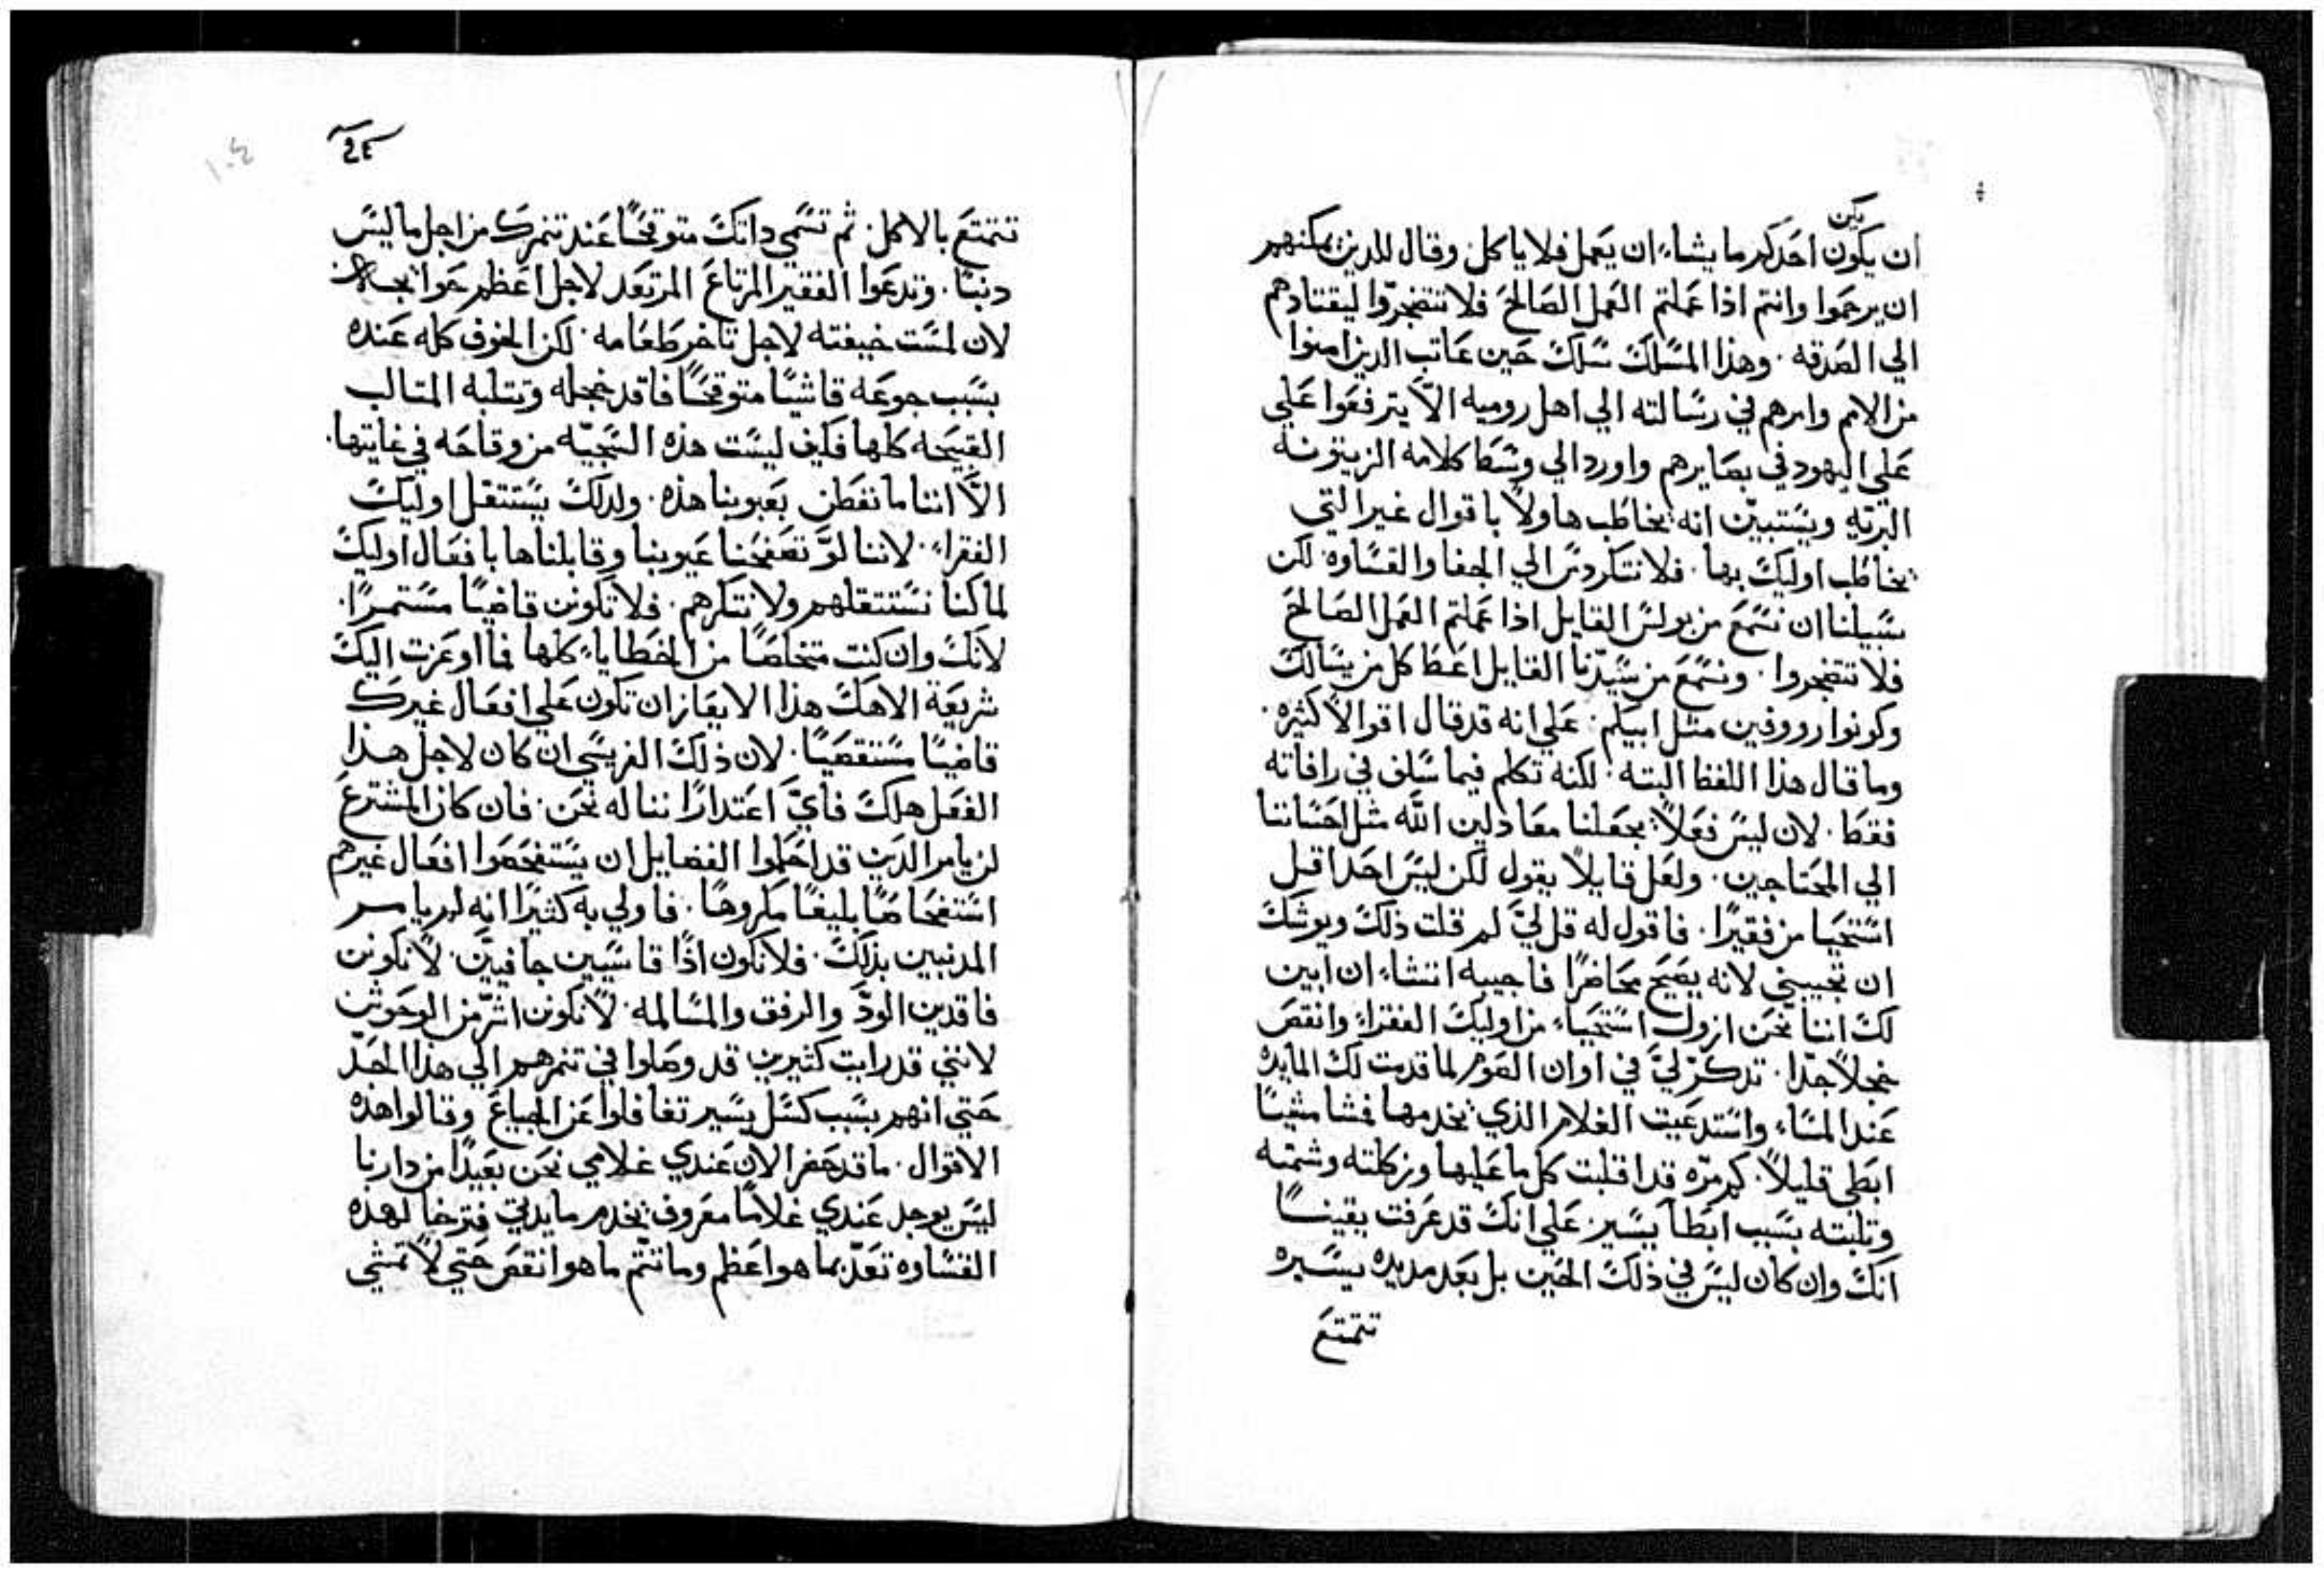 يكن
ان يكون احدكم ما يشاء ان يعمل فلا ياكل وقال للدين يمكنهم
ان يرحموا وانتم اذا عملتم العمل الصالح فلا تتضجروا ليقتادهم
الي الصدقه . وهذا المسلك سلك حين عاتب الدين امنوا
من الامم وامرهم في رسالته الي اهل روميه الا يترفعوا علي
علي اليهود في بصايرهم واورد الي وسط كلامه الزيتونه
البريه ويستبين انه يخاطب هاولا باقوال غير التي
يخاطب اوليك بها . فلا نتكردس الي الجفا والقساوه لكن
سبيلنا ان نسمع من بولس القايل اذا عملتم العمل الصالح
فلا تتضجروا . ونسمع من سيدنا القايل اعط كل من يسالك
وكونوا رووفين مثل ابيكم . علي انه قد قال اقوالا كثيره .
وما قال هذا اللفظ البته . لكنه تكلم فيما سلف في رافاته
فقط . لان ليس فعلا يجعلنا معادلين الله مثل احساننا
الي المحتاجين . ولعل قايلا يقول لكن ليس احدا اقل
استحيا من فقيرا . فاقول له قل لي لم قلت ذلك ويوشك
ان تجيبني لانه يصيح محاضرا فاجيبه اتشاء ان ابين
لك اننا نحن ازول استحياء من اوليك الفقراء وانقص
خجلا جدا . تدكر لي في اوان الصوم لما قدمت لك المايده
عند المساء واستدعيت الغلام الذي يخدمها فمشا مشيا
ابطي قليلا . كم مره قد اقلبت كل ما عليها وزكلته وشمته
وتلبته بسبب ابطا يسير . علي انك قد عرفت يقينا
انك وان كان ليس في ذلك الحين بل بعد مديده يسيره
تتمتع
٤٤
١٠٤
تتمتع بالاكل . ثم تسمي داتك متوقحا عند تنمرك من اجل ما ليس
دنبا . وتدعوا الفقير المرتاع المرتعد لاجل اعظم حوايجه
لان لست خيفته لاجل تاخر طعامه . لكن الخوف كله عنده
بسبب جوعه قاشيا متوقحا فاقد خجله وتتلبه المتالب
القبيحه كلها فكيف ليست هذه السجيه من وقاحه في غايتها .
الا اننا ما نفطن بعيوبنا هذه . ولدلك يستتقل اوليك
الفقراء . لاننا لو تصفحنا عيوبنا وقابلناها بافعال اوليك
لما كنا نستتقلهم ولا نتكرهم . فلا تكونن قاضيا مستمرا .
لانك وان كنت متخلصا من الخطايا كلها فما اوعزت اليك
شريعة الاهك هذا الايعاز ان تكون علي افعال غيرك
قاضيا مستقصيا . لان ذلك الفريسي ان كان لاجل هذا
الفعل هلك فاي اعتدارا نناله نحن . فان كان المشترع
لن يامر الدين قد احكموا الفضايل ان يستفحصوا افعال غيرهم
استفحاصا بليغا مكروحا . فاولي به كثيرا انه لم يامر
المدنبين بذلك . فلا نكون اذا قاسيين جافيين . لا نكونن
فاقدين الود والرفق والمسالمه . لا نكونن اشر من الوحوش
لانني قد رايت كثيرين قد وصلوا في تنمرهم الي هذا الحد
حتي انهم بسبب كسل يسير تغافلوا عن الجياع وقالوا هده
الاقوال . ما قد حضر الان عندي غلامي نحن بعيدا من دارنا
ليس يوجد عندي غلاما معروف يخدم مايدتي
القساوه تعد بما هو اعظم وما تتم ما هو انقص حتي لا تمشي